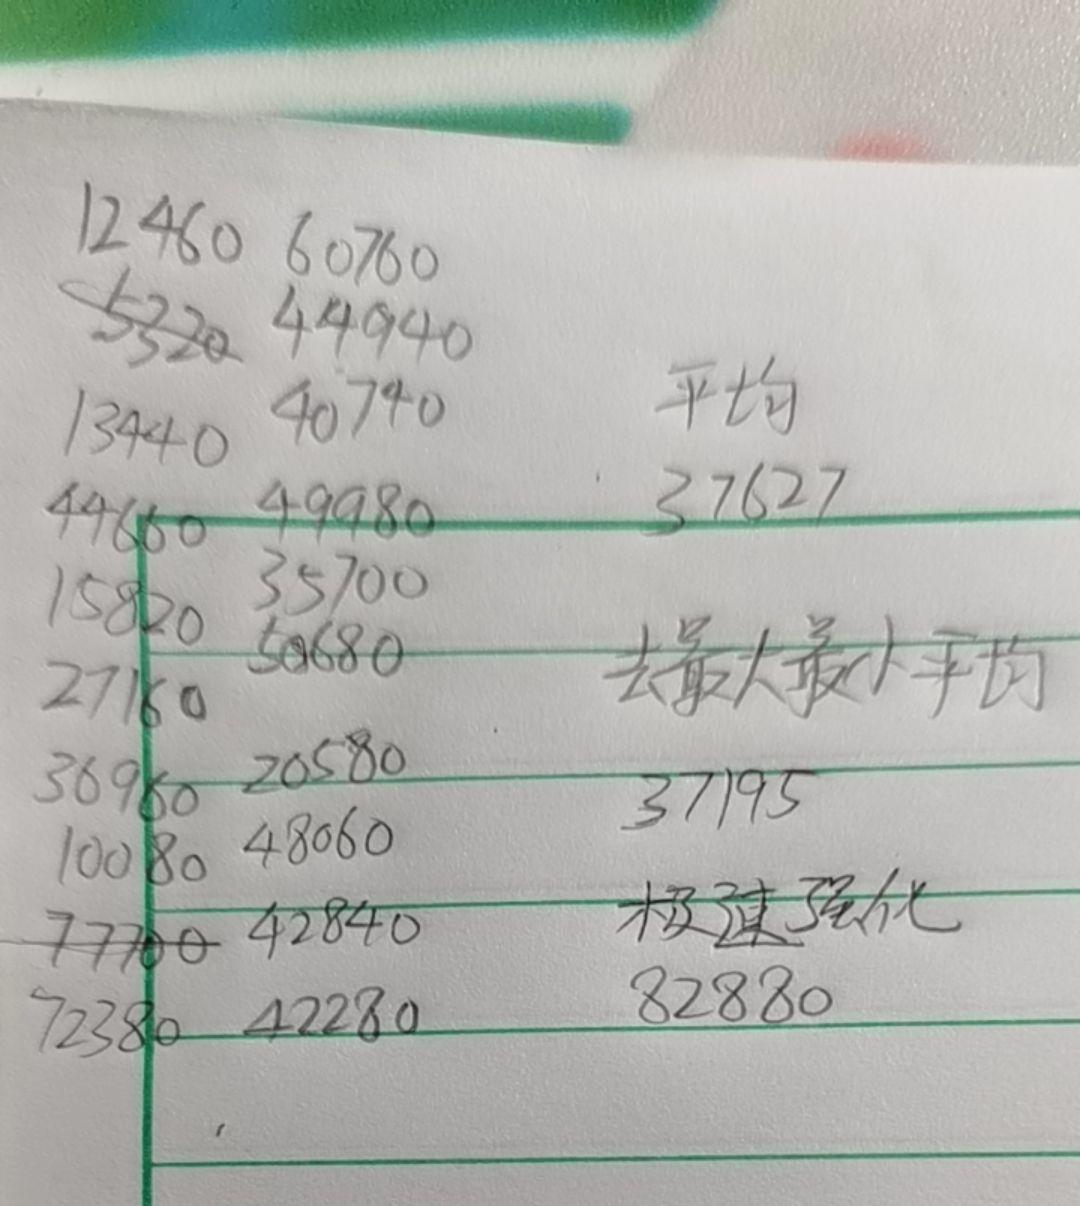 12460 60760
5320 44940
13440 40740
44660 49980
15820 35700
27160 50680
36960 20580
10080 48060
77700 42840
72380 42280
平均
37627
去最大最小平均
37195
极速强化
82880